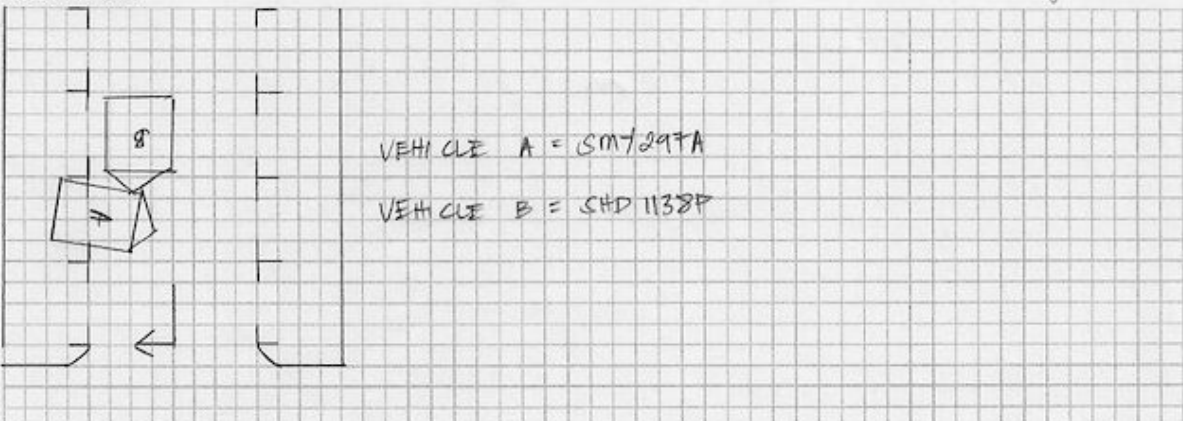 B
VEHICLE A = SMY297A
VEHICLE B = SHD 1138P
A